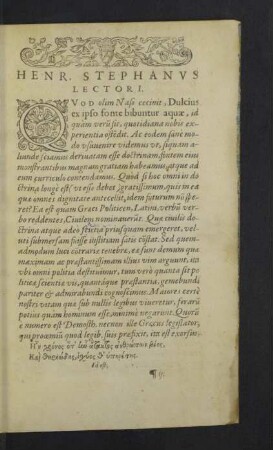 HENR. STEPHANVS
LECTORI.
QVOD olim Naso cecinit, Dulcius
ex ipso fonte bibuntur aquæ, id
quàm verũ sit, quotidiana nobis ex-
perientia ostẽdit. Ac eodem sanè mo-
do vsuuenire videmus vt, siquam ali-
unde sciamus deriuatam esse doctrinam, fontem eius
monstrantibus magnam gratiam habeamus, atque ad
eum curriculo contendamus. Quòd si hoc omni in do-
ctrina longè est, vt esse debet, gratissimum, quis in ea
quæ omnes dignitate antecellit, idem futurum nõ spe-
ret? Ea est quam Græci Politicen, Latini, verbũ ver-
bo reddentes, Ciuilem nominauerũt. Quæ ciuilis do-
ctrina atque adeo sciẽtia priusquam emergeret, ve-
luti submersam fuisse iustitiam satis cõstat. Sed quem-
admodum luci contraria tenebræ, ex sunt denuum quæ
maximam ac præstantissimam illius vim arguunt, ita
vbi omnis politia destituimur, tum verò quanta sit po-
litica scientia vis, quantáque præstantia, gemebundi
pariter & admirabundi cognoscimus. Maiores certè
nostri vitam quæ sub nullis legibus viueretur, ferarũ
potiùs quàm hominum esse, minimè negarunt. Quorũ
è numero est Demosth. necnon ille Græcus legislator,
qui proœmiũ quod legib. suis præfixit, ita est exorsus,
Ἦν χρόνος ὅτ᾽ ἦν ἄτακτος ἀνθρώπων βίος,
Καὶ θηριώδης, ἰσχύος θ᾽ ὑπηρέτης.
Id est,